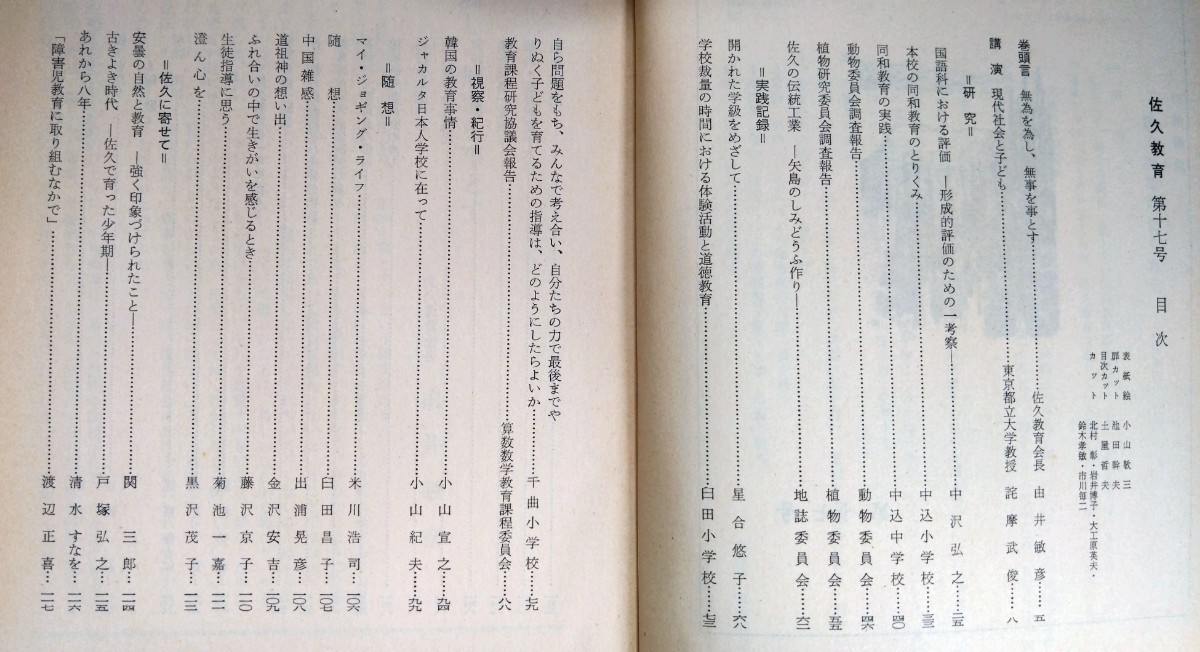 佐久教育 第十七号 目次
表紙絵 小山敬三
扉カット 池田幹夫
目次カット 土屋哲夫
カット 北村彰・岩井博子・大工原英夫・
鈴木孝敏・市川毎二
巻頭言 無為を為し、無事を事とす……佐久教育会長 由井敏彦……五
講演 現代社会と子ども……東京都立大学教授 詫摩武俊……八
=研究=
国語科における評価 ―形成的評価のための一考察―……中沢弘之……二五
本校の同和教育のとりくみ……中込小学校……三三
同和教育の実践……中込中学校……四〇
動物委員会調査報告……動物委員会……四六
植物研究委員会調査報告……植物委員会……五五
佐久の伝統工業 ―矢島のしみどうふ作り―……地誌委員会……六二
=実践記録=
開かれた学級をめざして……星合悠子……六八
学校裁量の時間における体験活動と道徳教育……臼田小学校……七三
自ら問題をもち、みんなで考え合い、自分たちの力で最後までや
りぬく子どもを育てるための指導は、どのようにしたらよいか……千曲小学校……七九
教育課程研究協議会報告……算数数学教育課程委員会……八八
=視察・紀行=
韓国の教育事情……小山宣之……九四
ジャカルタ日本人学校に在って……小山紀夫……九九
=随想=
マイ・ジョギング・ライフ……米川浩司……一〇六
随想……臼田昌子……一〇七
中国雑感……出浦晃彦……一〇八
道祖神の想い出……金沢安吉……一〇九
ふれ合いの中で生きがいを感じるとき……藤沢京子……一一〇
生徒指導に思う……菊池一嘉……一一一
澄ん心を……黒沢茂子……一一三
=佐久に寄せて=
安曇の自然と教育 ―強く印象づけられたこと―……関三郎……一一四
古きよき時代 ―佐久で育った少年期―……戸塚弘之……一一五
あれから八年……清水すなを……一一六
「障害児教育に取り組むなかで」……渡辺正喜……一一七